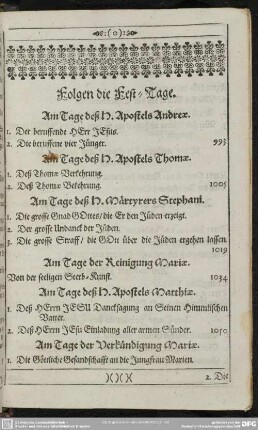 :(o):
Folgen die Fest-Tage.
Am Tage deß H. Apostels Andreæ.
1. Der beruffende HErr JEsus.
2. Die beruffene vier Jünger. 993
Am Tage deß H. Apostels Thomæ.
1. Deß Thomæ Verkehrung.
2. Deß Thomæ Bekehrung. 1005
Am Tage deß H. Märtyrers Stephani.
1. Die grosse Gnad GOttes/ die Er den Jüden erzeigt.
2. Der grosse Undanck der Jüden.
3. Die grosse Straff/ die GOtt über die Jüden ergehen lassen.
1019
Am Tage der Reinigung Mariæ.
Von der seeligen Sterb-Kunst. 1034
Am Tage deß H. Apostels Matthiæ.
1. Deß HErrn JESU Dancksagung an Seinen Himmlischen
Vatter.
2. Deß HErrn JEsu Einladung aller armen Sünder. 1050
Am Tage der Verkündigung Mariæ.
1. Die Göttliche Gesandschafft an die Jungfrau Marien.
)( )( )(
2. Die